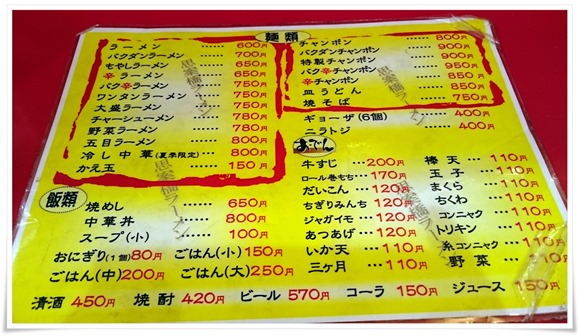 麺類
ラーメン …… 600円
バクダンラーメン …… 700円
もやしラーメン …… 650円
辛ラーメン …… 650円
バク辛ラーメン …… 750円
ワンタンラーメン …… 750円
大盛ラーメン …… 750円
チャーシューメン …… 780円
野菜ラーメン …… 780円
五目ラーメン …… 800円
冷し中華(夏季限定) …… 800円
かえ玉 …… 150円
チャンポン …… 800円
バクダンチャンポン …… 900円
特製チャンポン …… 900円
バク辛チャンポン …… 950円
辛チャンポン …… 850円
皿うどん …… 850円
焼そば …… 750円
ギョーザ(6個) …… 400円
ニラトジ …… 400円
おでん
牛すじ …… 200円
ロール巻もち …… 170円
だいこん …… 120円
ちぎりみんち …… 120円
ジャガイモ …… 120円
あつあげ …… 120円
いか天 …… 110円
三ヶ月 …… 110円
棒天 …… 110円
玉子 …… 110円
まくら …… 110円
ちくわ …… 110円
コンニャク …… 110円
トリキン …… 110円
糸コンニャク …… 110円
野菜 …… 110円
飯類
焼めし …… 650円
中華丼 …… 800円
スープ(小) …… 100円
おにぎり(1個)80円 ごはん(小)150円
ごはん(中)200円 ごはん(大)250円
清酒 450円 焼酎 420円 ビール 570円 コーラ 150円 ジュース 150円